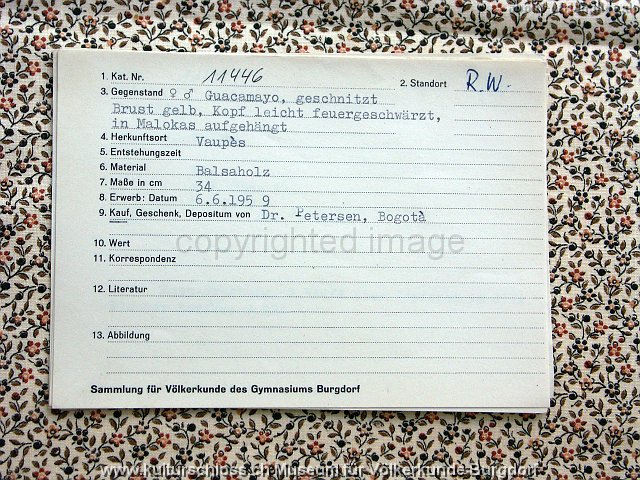 1. Kat. Nr. 11446 2. Standort R.W.
3. Gegenstand ♀ ♂ Guacamayo, geschnitzt
Brust gelb, Kopf leicht feuergeschwärzt,
in Malokas aufgehängt
4. Herkunftsort Vaupès
5. Entstehungszeit
6. Material Balsaholz
7. Maße in cm 34
8. Erwerb: Datum 6.6.195 9
9. Kauf, Geschenk, Depositum von Dr. Petersen, Bogotà
copyrighted image
10. Wert
11. Korrespondenz
12. Literatur
13. Abbildung
Sammlung für Völkerkunde des Gymnasiums Burgdorf
www.kulturschloss.ch Museum für Völkerkunde Burgdorf